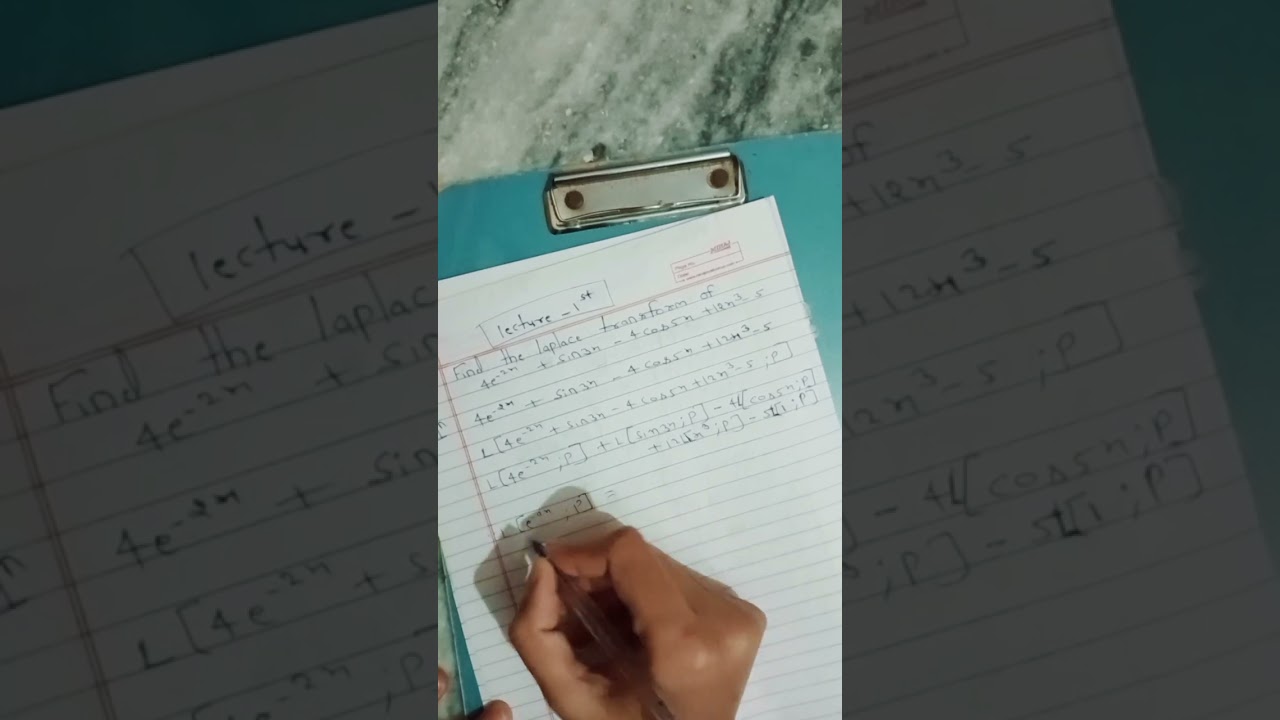 lecture - 1st
Find the laplace transform of
4e^-2x + sin3x - 4cos5x + 12x^3 - 5
4e^-2x + sin3x - 4cos5x + 12x^3 - 5
L[4e^-2x + sin3x - 4cos5x + 12x^3 - 5 ; P]
L[4e^-2x ; P] + L[sin3x ; P] - 4L[cos5x ; P]
+ 12L[x^3 ; P] - 5L[1 ; P]
[e^ax ; P] =